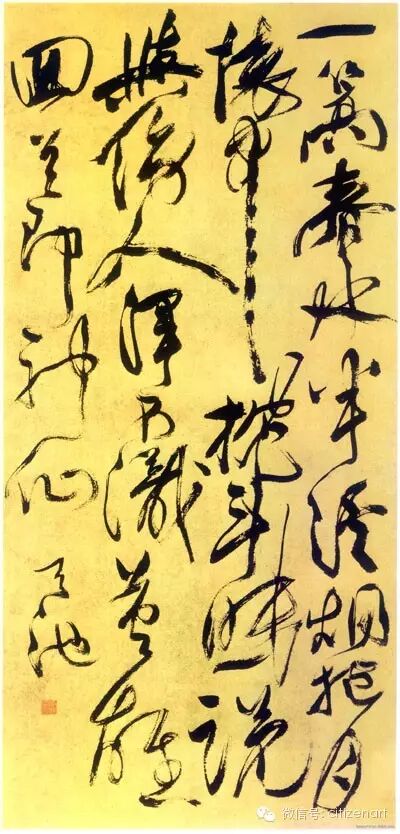 一篙春水半溪烟抱月
懷中枕斗眠説
與傍人渾不識英雄
回首即神仙
天池
微信号: citizenart